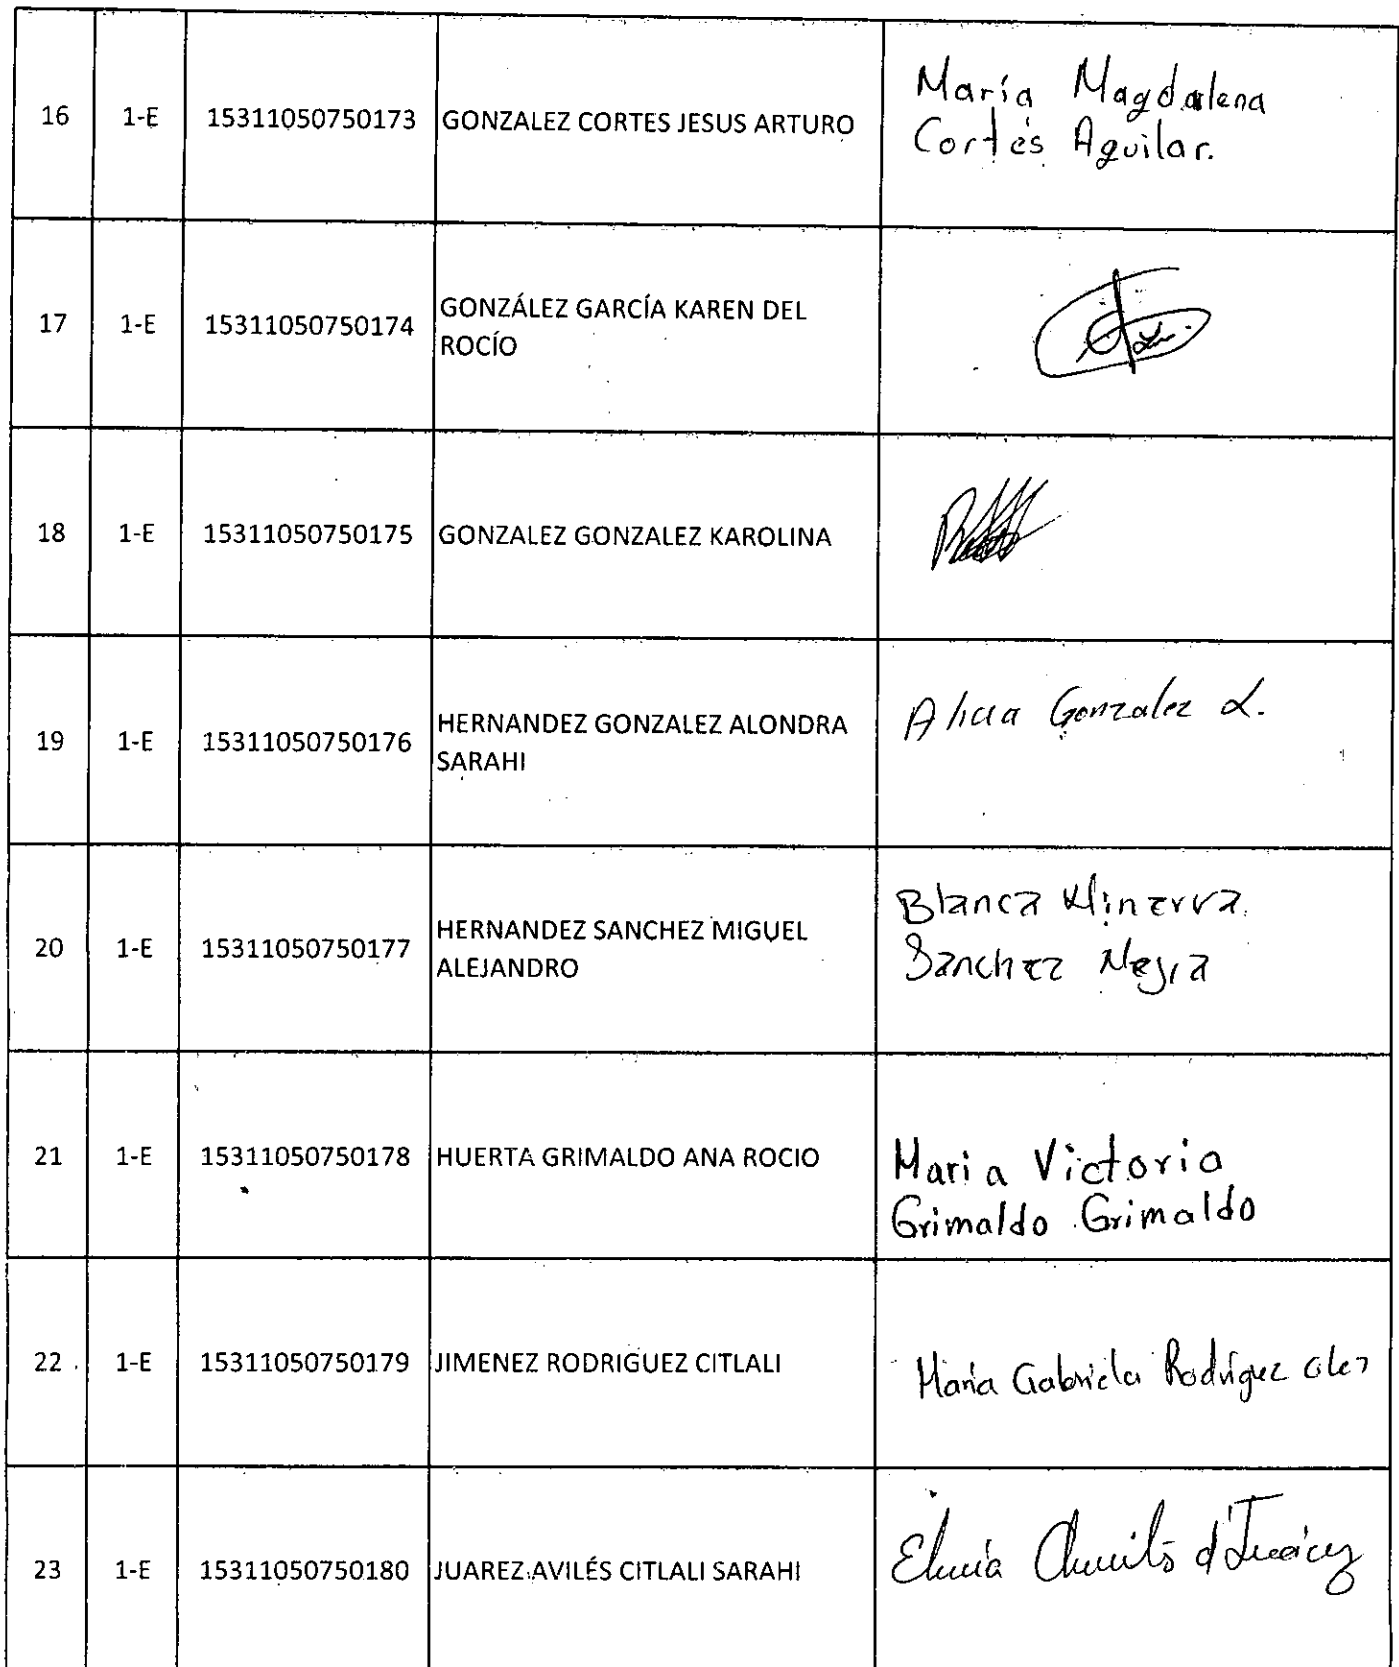 16 1-E 15311050750173 GONZALEZ CORTES JESUS ARTURO
María Magdalena
Cortés Aguilar.
17 1-E 15311050750174 GONZÁLEZ GARCÍA KAREN DEL
ROCÍO
18 1-E 15311050750175 GONZALEZ GONZALEZ KAROLINA
19 1-E 15311050750176 HERNANDEZ GONZALEZ ALONDRA
SARAHI
Alicia Gonzalez L.
20 1-E 15311050750177 HERNANDEZ SANCHEZ MIGUEL
ALEJANDRO
Blanca Minerva
Sanchez
21 1-E 15311050750178 HUERTA GRIMALDO ANA ROCIO
Maria Victoria
Grimaldo Grimaldo
22 1-E 15311050750179 JIMENEZ RODRIGUEZ CITLALI
María Gabriela Rodríguez
23 1-E 15311050750180 JUAREZ AVILÉS CITLALI SARAHI